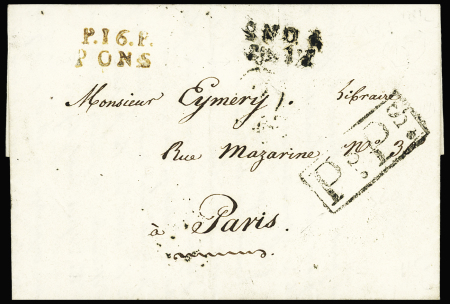 P.16.P.
PONS
Monsieur Eymery, Libraire
Rue Mazarine N° 3
P.P.
à Paris.